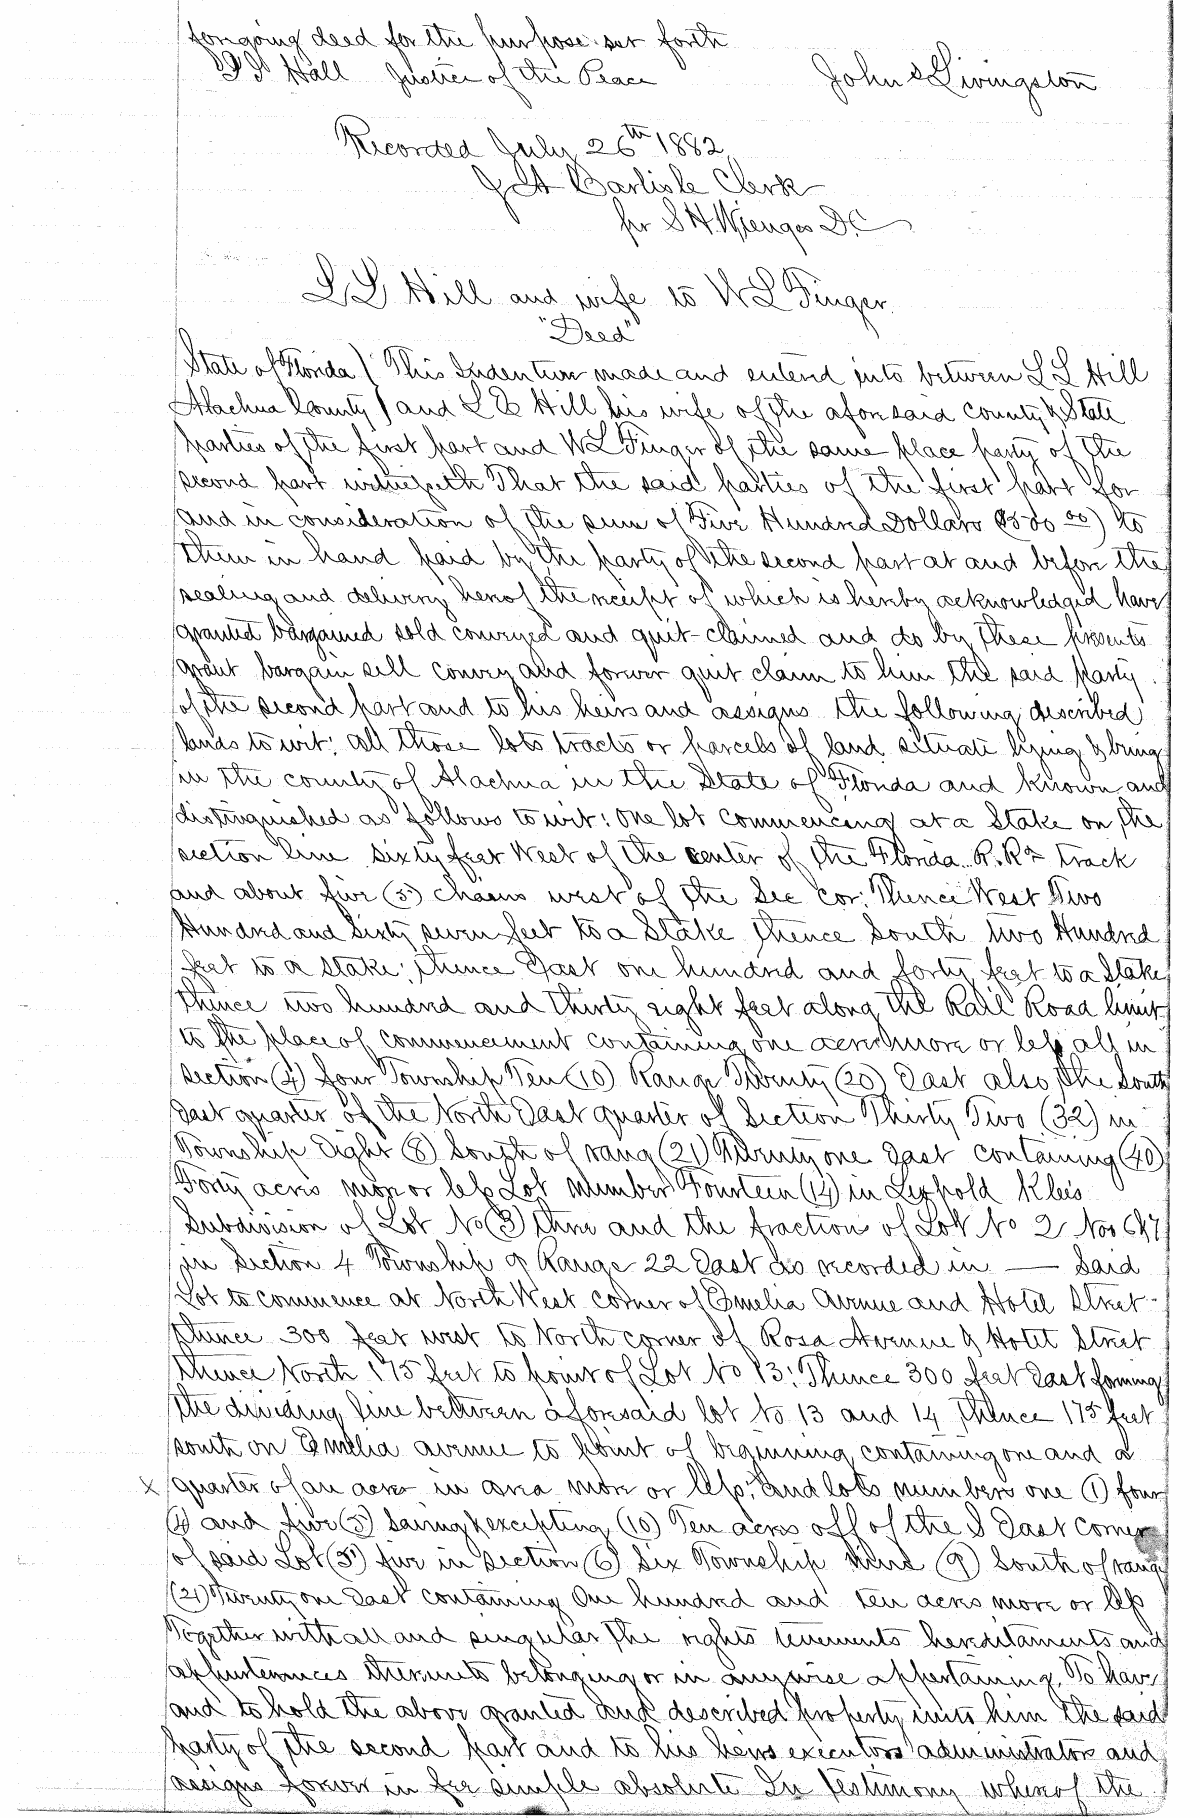 foregoing deed for the purpose set forth
Hall Justice of the Peace
John Livingston
Recorded July 26th 1882
J A Carlisle Clerk
for S H Wienges D.C
L L Hill and wife to W L Finger
"Deed"
State of Florida ) This Indenture made and entered into between L L Hill
Alachua County ) and L E Hill his wife of the aforesaid county & State
parties of the first part and W L Finger of the same place party of the
second part witnesseth That the said parties of the first part for
and in consideration of the sum of Five Hundred Dollars ($500 00) to
them in hand paid by the party of the second part at and before the
sealing and delivery hereof the receipt of which is hereby acknowledged have
granted bargained sold conveyed and quit-claimed and do by these presents
grant bargain sell convey and forever quit claim to him the said party
of the second part and to his heirs and assigns the following described
lands to wit: all those lots tracts or parcels of land situate lying & being
in the county of Alachua in the State of Florida and known and
distinguished as follows to wit: one lot commencing at a Stake on the
section line sixty feet West of the center of the Florida R.Rd track
and about five (5) chains west of the Sec cor: Thence West Two
Hundred and Sixty seven feet to a Stake thence South two Hundred
feet to a stake; thence East one hundred and forty feet to a Stake
thence two hundred and thirty eight feet along the Rail Road limit
to the place of commencement containing one acre more or less all in
section (4) four Township Ten (10) Range Twenty (20) East also the South
East quarter of the North East quarter of Section Thirty Two (32) in
Township Eight (8) South of rang (21) Twenty one East containing (40)
Forty acres more or less Lot number Fourteen (14) in Leopold Klees
Subdivision of Lot No (3) three and the fraction of Lot No 2 Nos 6&7
in Section 4 Township 9 Range 22 East as recorded in — Said
Lot to commence at North West corner of Emelia Avenue and Hotel Street
thence 300 feet west to North corner of Rosa Avenue & Hotel Street
thence North 175 feet to point of Lot No 13: Thence 300 feet East forming
the dividing line between aforesaid lot No 13 and 14 thence 175 feet
south on Emelia avenue to point of beginning containing one and a
x quarter of an acre in area more or less; and lots numbers one (1) four
(4) and five (5) saving & excepting (10) Ten acres off of the S East corner
of said Lot (5) five in section (6) Six Township Nine (9) South of range
(21) Twenty one East containing One hundred and ten acres more or less
Together with all and singular the rights tenements hereditaments and
appurtenances thereunto belonging or in anywise appertaining. To have
and to hold the above granted and described property unto him the said
party of the second part and to his heirs executors administrators and
assigns forever in fee simple absolute In testimony whereof the